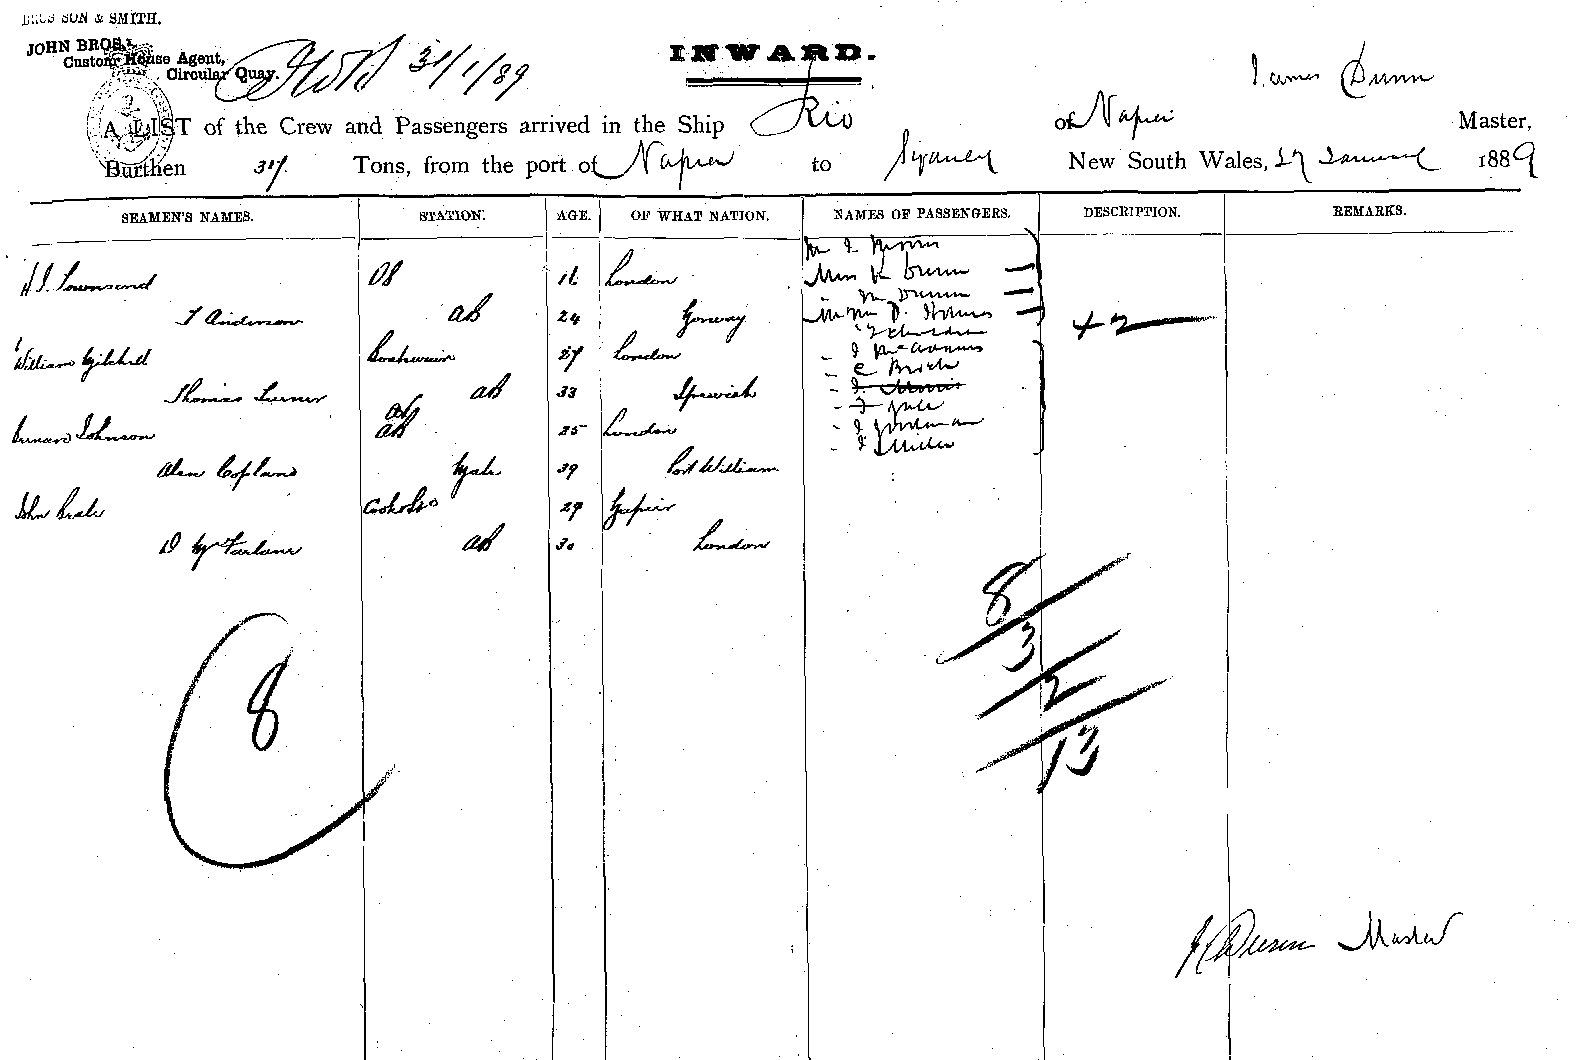 BROS SON & SMITH.
JOHN BROS.
Custom House Agent,
Circular Quay.
31/1/89
INWARD.
James Dunn
A LIST of the Crew and Passengers arrived in the Ship Rio of Napier Master,
Burthen 317. Tons, from the port of Napier to Sydney New South Wales, 27 January 1889
SEAMEN'S NAMES. STATION. AGE. OF WHAT NATION. NAMES OF PASSENGERS. DESCRIPTION. REMARKS.
Miss K Dunn
H J Townsend OS 16 London
M Dunn
T Anderson AB 24 Norway
+2
William Mitchell Boatswain 27 London
Thomas Turner AB 33 Ipswich
AB
Johnson AB 25 London
J Miller
Alen Copland Mate 39 Port William
John Beale Cook &c 29 Napier
D McFarlane AB 30 London
8
3
2
13
8
J Dunn Master